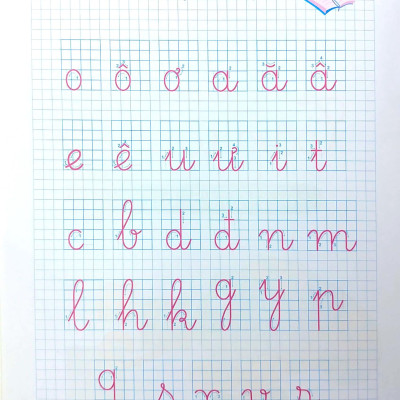 o ô ơ a ă â
e ê u ư i t
c b d đ n m
l h k g y p
q